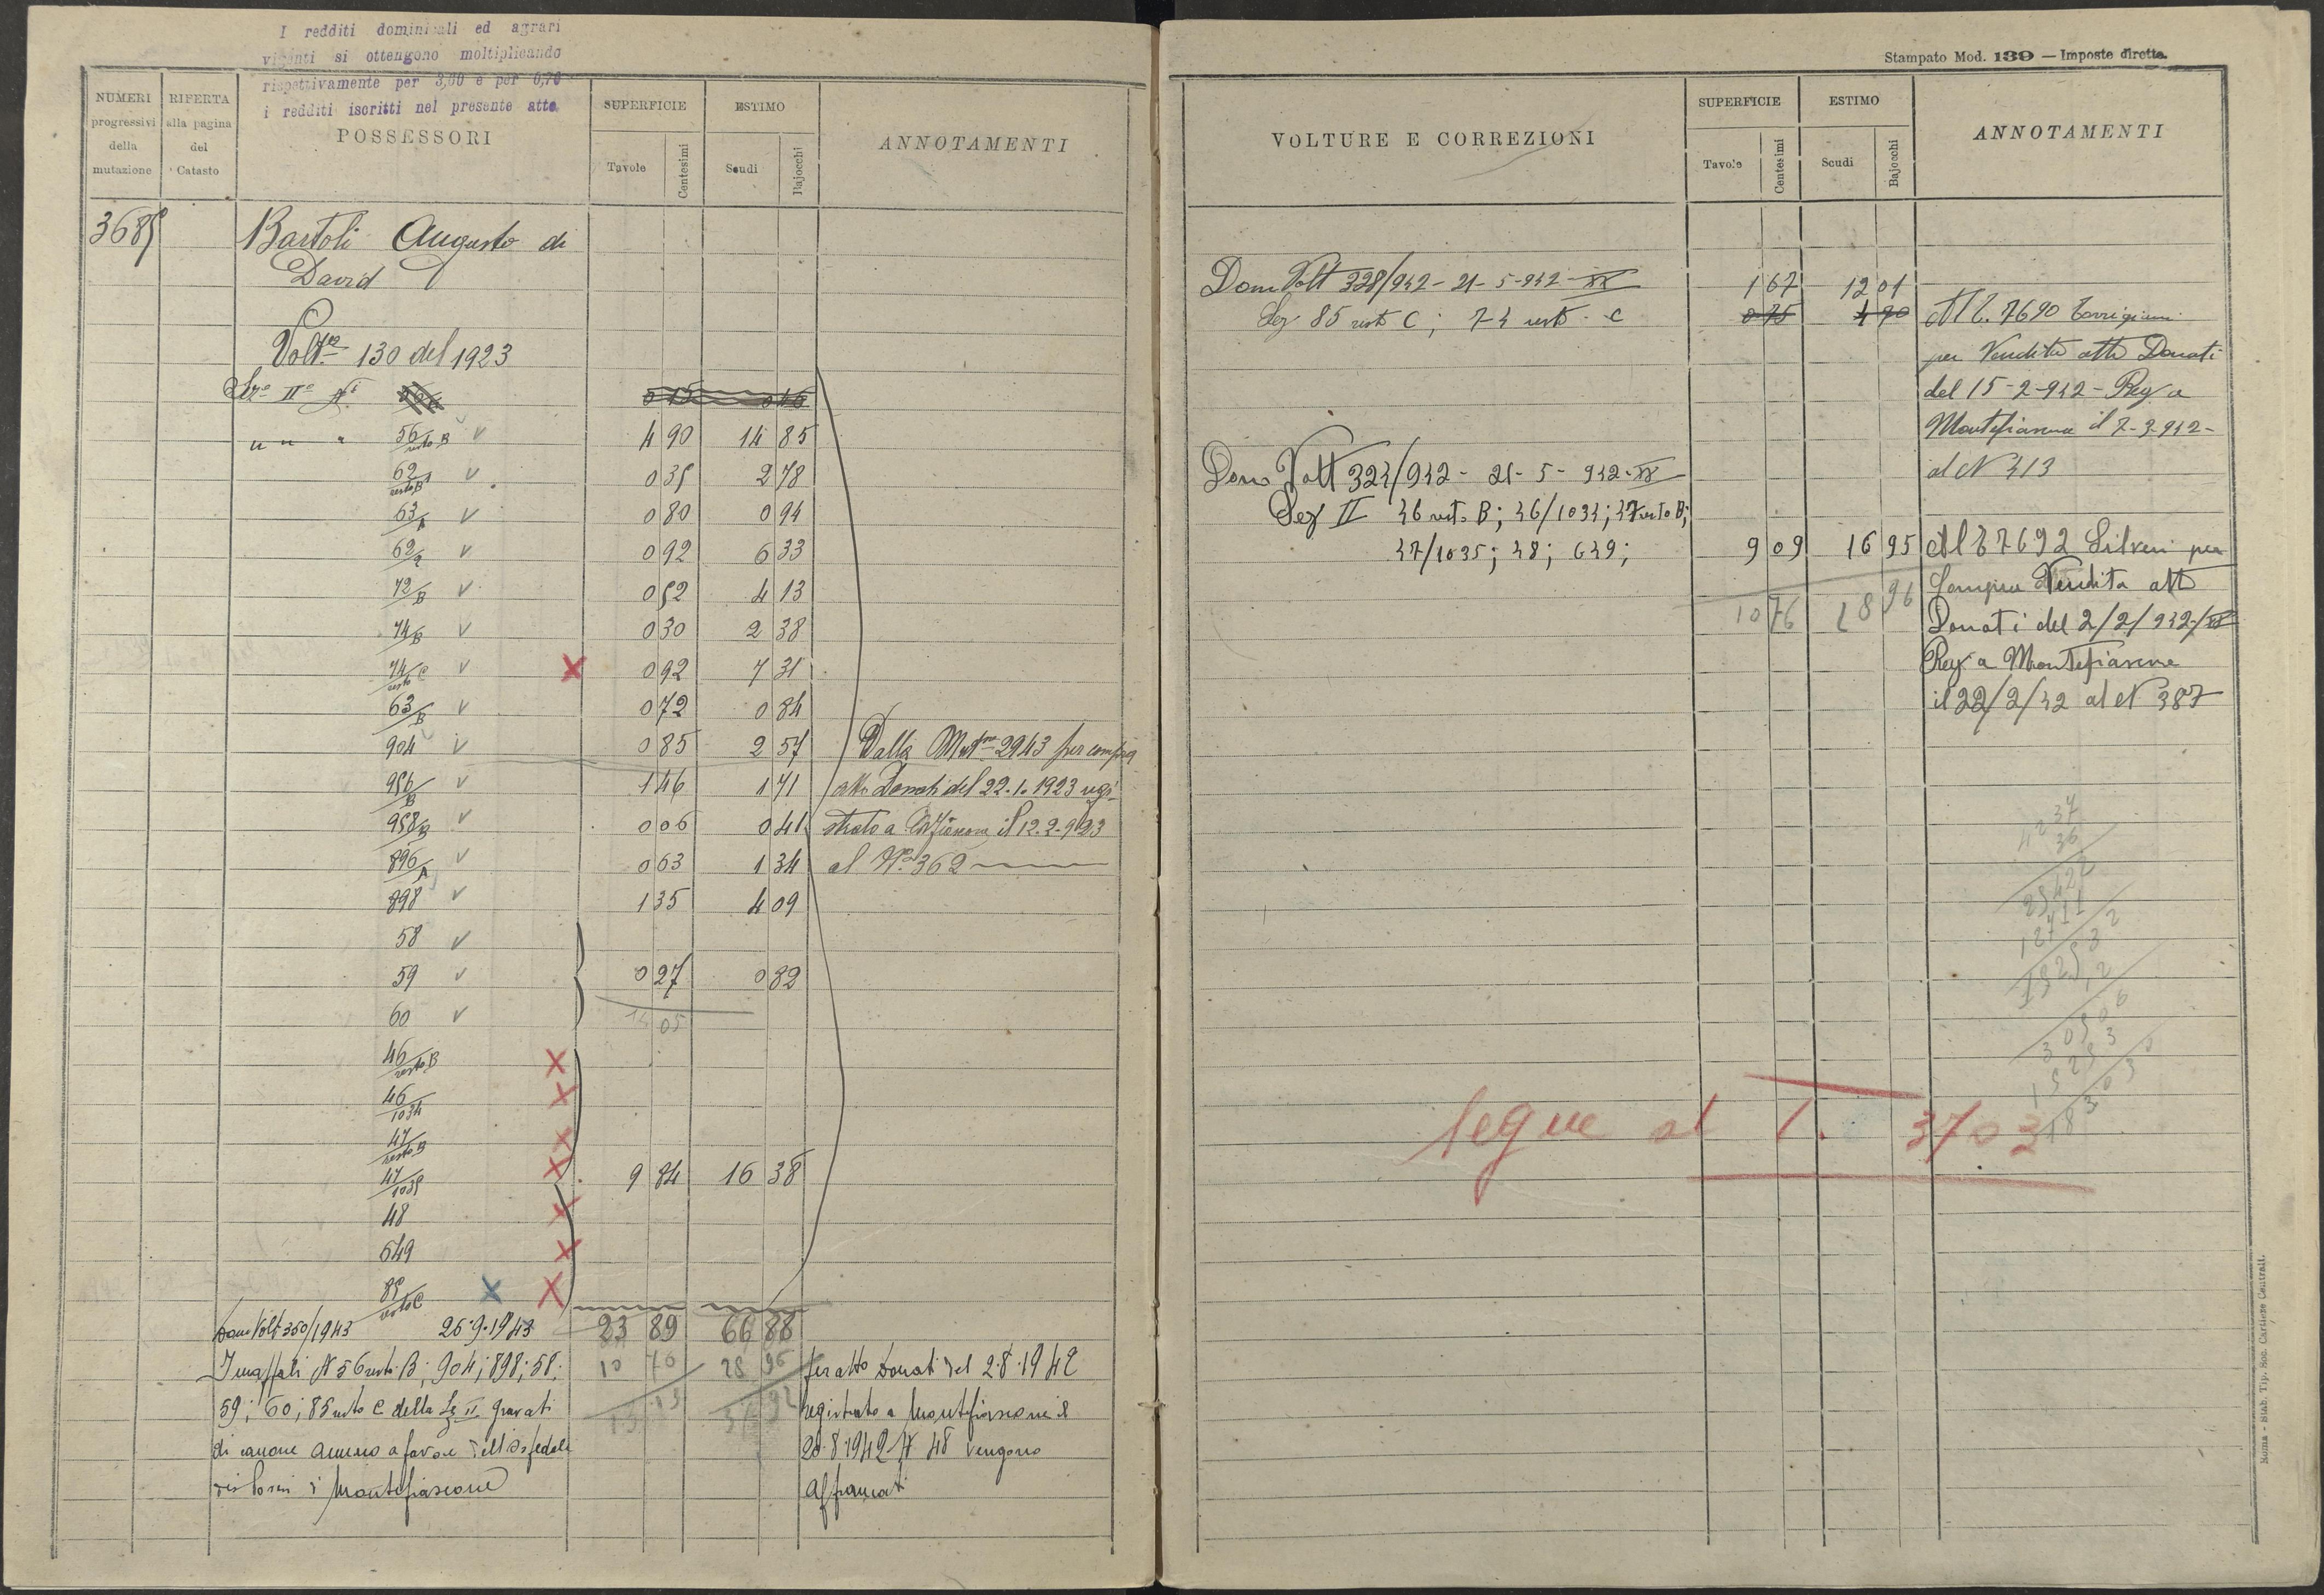 I redditi dominicali ed agrari
vigenti si ottengono moltiplicando
rispettivamente per 3,60 e per 0,76
i redditi iscritti nel presente atto
NUMERI progressivi della mutazione
RIFERTA alla pagina del Catasto
POSSESSORI
SUPERFICIE
Tavole
Centesimi
ESTIMO
Scudi
Bajocchi
ANNOTAMENTI
3685 Bartoli Augusto di
David
Volt.ra 130 del 1923
Sez.e II.a N.i 0 15 0 46
" " " 56/resto B V 4 90 14 85
62/resto B V 0 35 2 78
63/A V 0 80 0 94
62/2 V 0 92 6 33
72/B V 0 52 4 13
74/B V 0 30 2 38
74/resto C V X 0 92 7 31
63/B V 0 72 0 84
904 V 0 85 2 57 Dalla Mut.ne 2943 per compra
956/B V 1 46 1 71 atto Donati del 22.1.1923 regi-
958/B V 0 06 0 41 strato a Mtfiascone il 12.2.923
896/A V 0 63 1 34 al N.º 362
898 V 1 35 4 09
58 V
59 V 0 27 0 82
60 V
14 05
46/resto B X
46/1034 X
47/resto B X
47/1035 X 9 84 16 38
48 X
649 X
85/resto C X X
Dom Volt 350/1943 26.9.1943 23 89 66 88
I mappali N 56 resto B; 904; 898; 58; 10 76 28 96 per atto Donati del 2.8.1942
59; 60; 85 resto C della Sez II gravati 13 13 37 92 registrato a Montefiascone il
di canone annuo a favore dell'Ospedale 20.8.1942 N 48 vengono
di Montefiascone affrancati
Stampato Mod. 139 — Imposte dirette.
VOLTURE E CORREZIONI
SUPERFICIE
Tavole
Centesimi
ESTIMO
Scudi
Bajocchi
ANNOTAMENTI
Dom Volt 328/942 - 21-5-942-XX 1 67 12 01
Sez 85 resto C; 74 resto C 0 75 4 70 Al C. 7690
per Vendita atto Donati
del 15-2-942 - Reg a
Montefiascone il 7-3-942-
al N 413
Dom Volt 324/942 - 21-5-942-XX
Sez II 46 resto B; 46/1034; 47 resto B;
47/1035; 48; 649; 9 09 16 95 Al C 7692 Silveri per
Compra Vendita atto
10 76 28 96 Donati del 2/2/942/XX
Reg a Montefiascone
il 22/2/42 al N 387
segue al T. 3703
Roma - Stab. Tip. Soc. Cartiere Centrali.